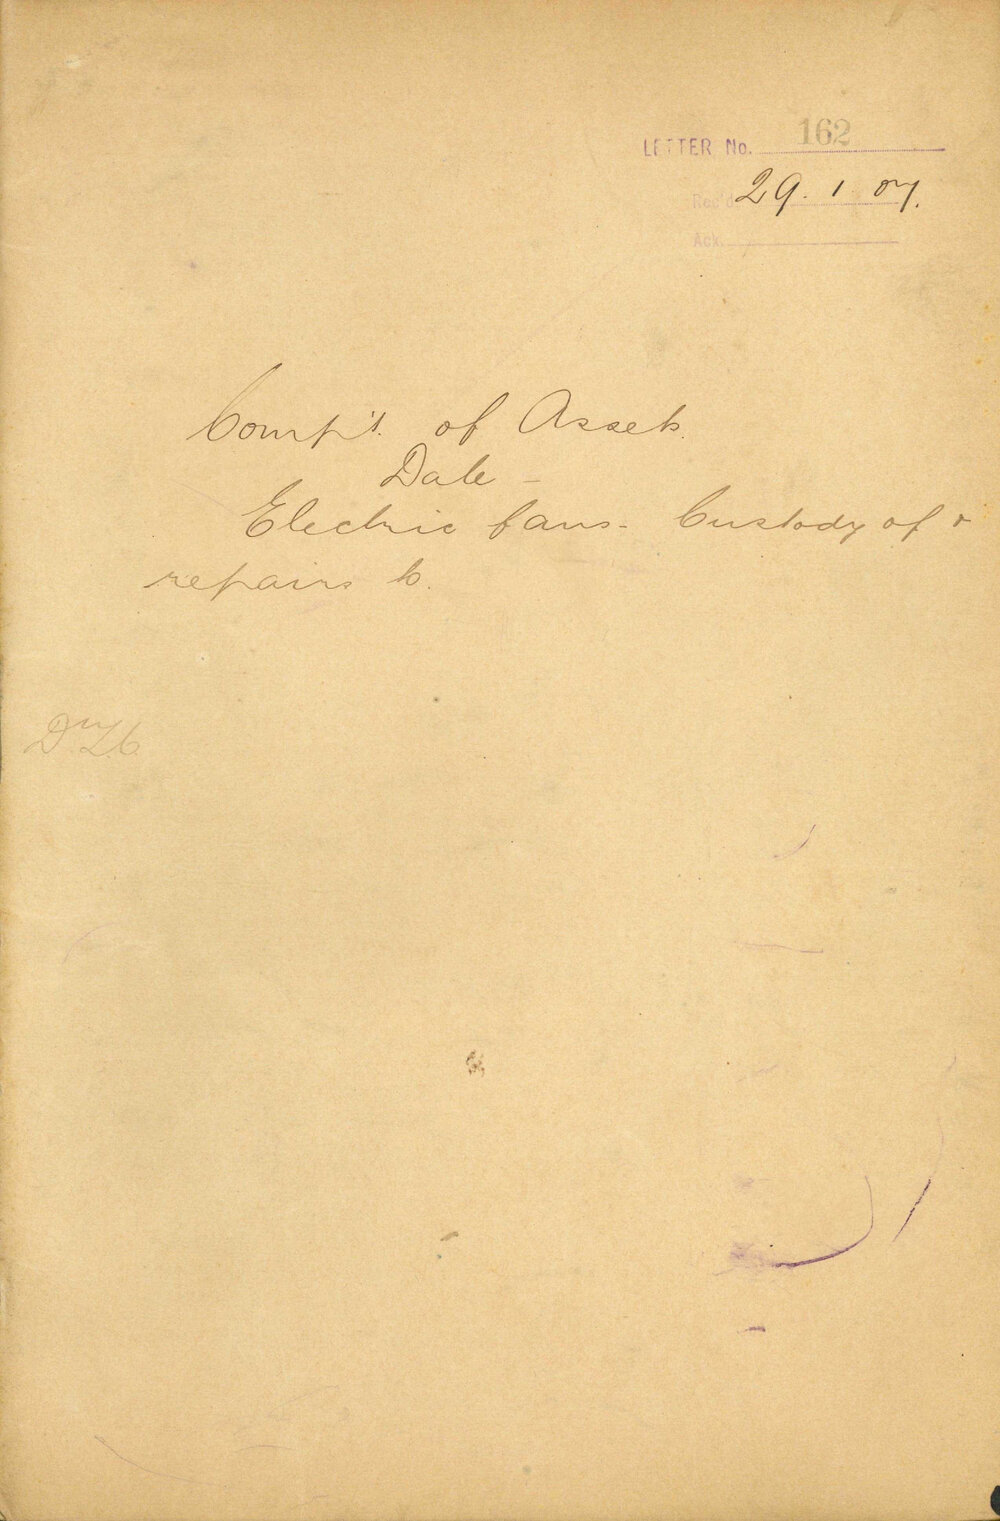 LETTER No. 162
Rec'd 29. 1. 07.
Ack.
Comp't. of Assets.
Date -
Electric fans - Custody of &
repairs to.